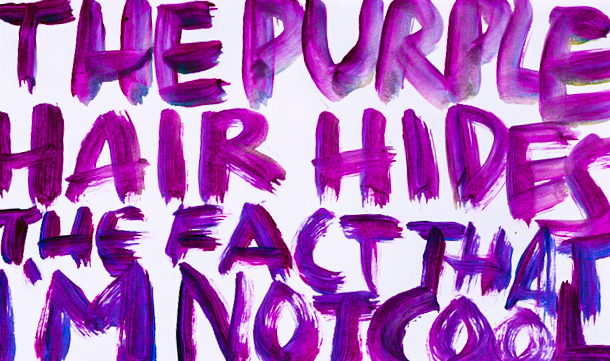 THE PURPLE
HAIR HIDES
THE FACT THAT
I'M NOT COOL